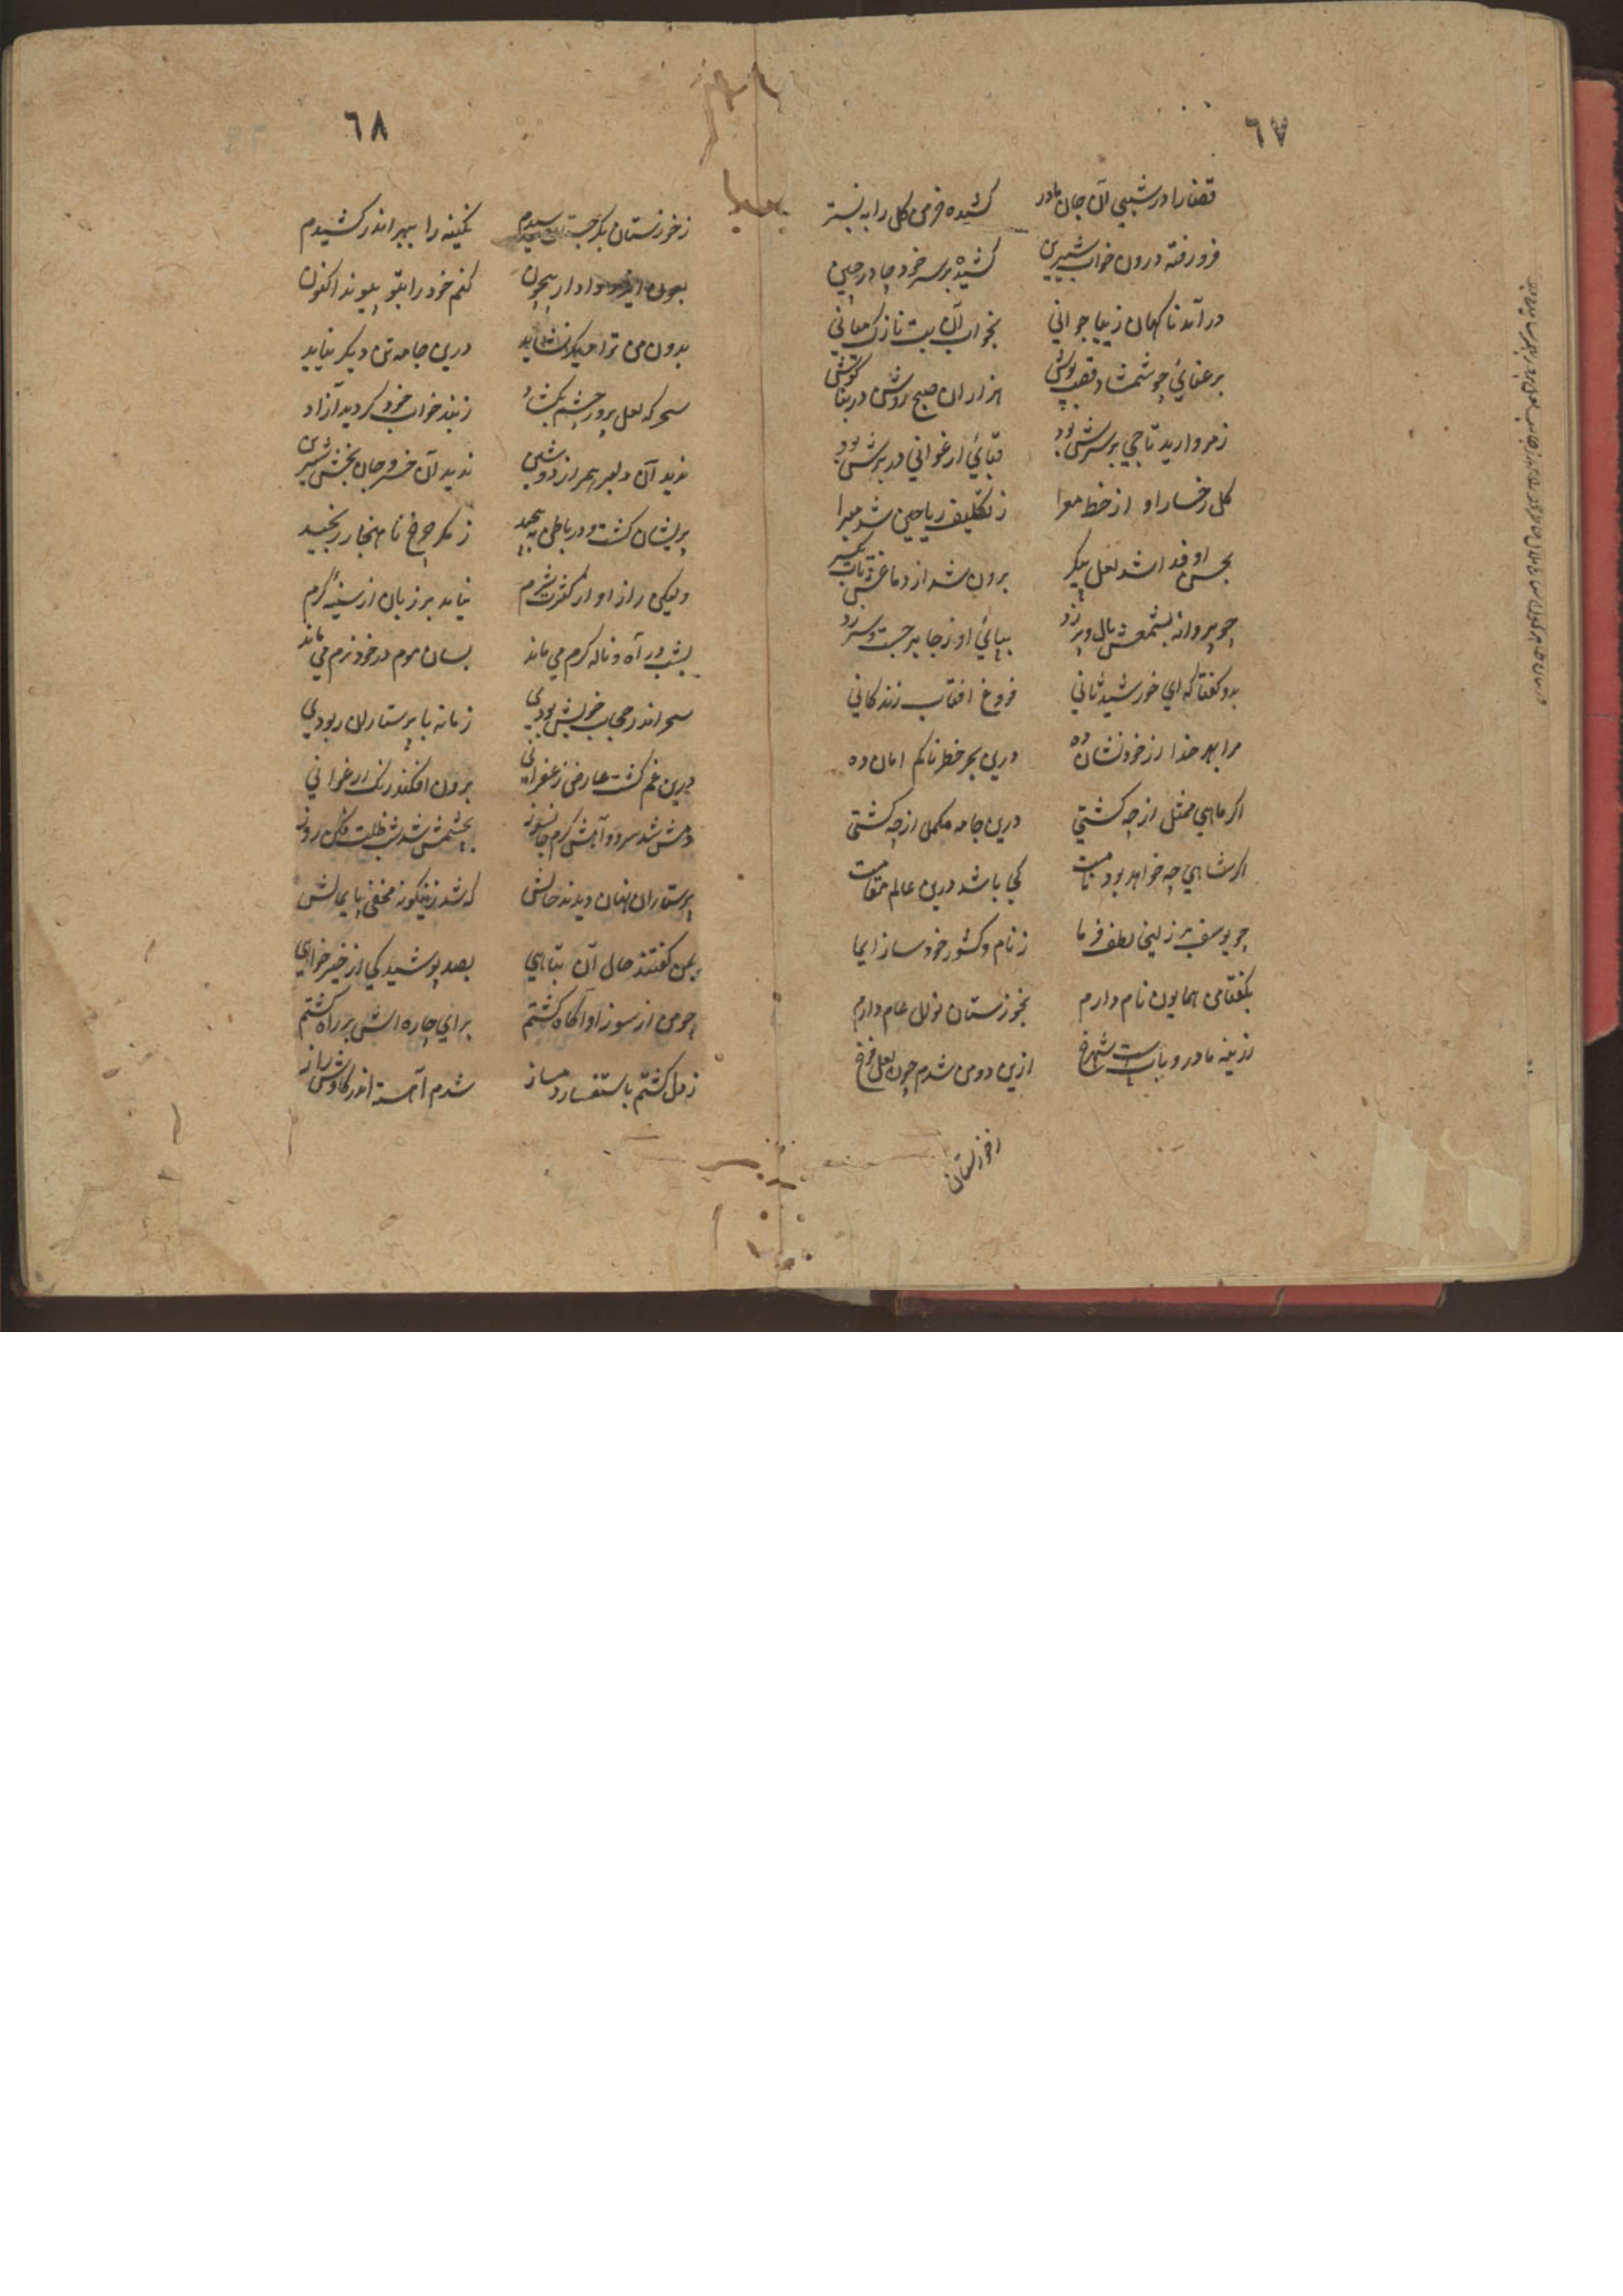 ٦٧
قضا را در شبی آن جان مادر کشیده خرمن گل را به بستر
فرو رفته درون خواب شیرین کشیده بر سر خود چادر چین
در آمد ناکهان زیبا جوانی بخواب آن بت نازک میانی
برعنائی چو شمشاد قصب پوش هزاران صبح روشن در بناکوش
ز مروارید تاجی بر سرش بود قبائی ارغوانی در برش بود
کل رخسار او از خط معرا ز تکلیف ریاحین شد مبرا
بحسن او فدا شد لعل پیکر برون شد از دماغش
چو پروانه بشمعش بال و پر زد بپائی او ز جا برجست و سر زد
بدو کفتا که ای خورشید ثانی فروغ افتاب زندکانی
مرا بهر خدا از خود نشان ده درین بحر خطرناکم امان ده
اکر ماهی ممثل از چه کشتی درین جامه مکمل از چه کشتی
اکر شاهی چه خواهد بود نامت کجا باشد درین عالم مقامت
چو یوسف بر زلیخا لطف فرما ز نام و کشور خود ساز ایما
بکفتا من همایون نام دارم بخوزستان نزل عام دارم
زرینه مادر و بابست شهرخ ازین دو من شدم چون لعل فرخ
زخوزستان
٦٨
زخوزستان بکرجستان رسیدم نکینه را ببر اندر کشیدم
بعون ایزد دادار بیچون کنم خود را بتو پیوند اکنون
بدون من ترا دیکر نشاید درین جامه تن دیکر نیاید
سحر که لعل پرور چشم بکشاد ز بند خواب خود کردید آزاد
ندید آن دلبر همراز دوشین ندید آن خسرو جان بخش شیرین
پریشان کشت و در باطن به پیچید ز مکر چرخ ناهنجار رنجید
ولیکن راز او از کثرت شرم نیامد بر زبان از سینهٔ کرم
بشب در آه و ناله کرم می ماند بسان موم در خود نرم می ماند
سحر اندر حجاب خویش بودی زمانه با پرستاران ربودی
درین غم کشت عارض زعفرانی برون افکند رنک ارغوانی
دمش شد سرد و آهش کرم جانسوز بچشمش شد شب ظلمت فکن روز
پرستاران نهان دیدند حالش که شد زینکونه مخفی پایمالش
بمن کفتند حال آن تباهی بصد پوشیدکی از خیر خواهی
چو من از سوز او آکاه کشتم برای چاره اش بر راه کشتم
ز دل کشتم باستفسار دمساز شدم آهسته اندر کاوش راز